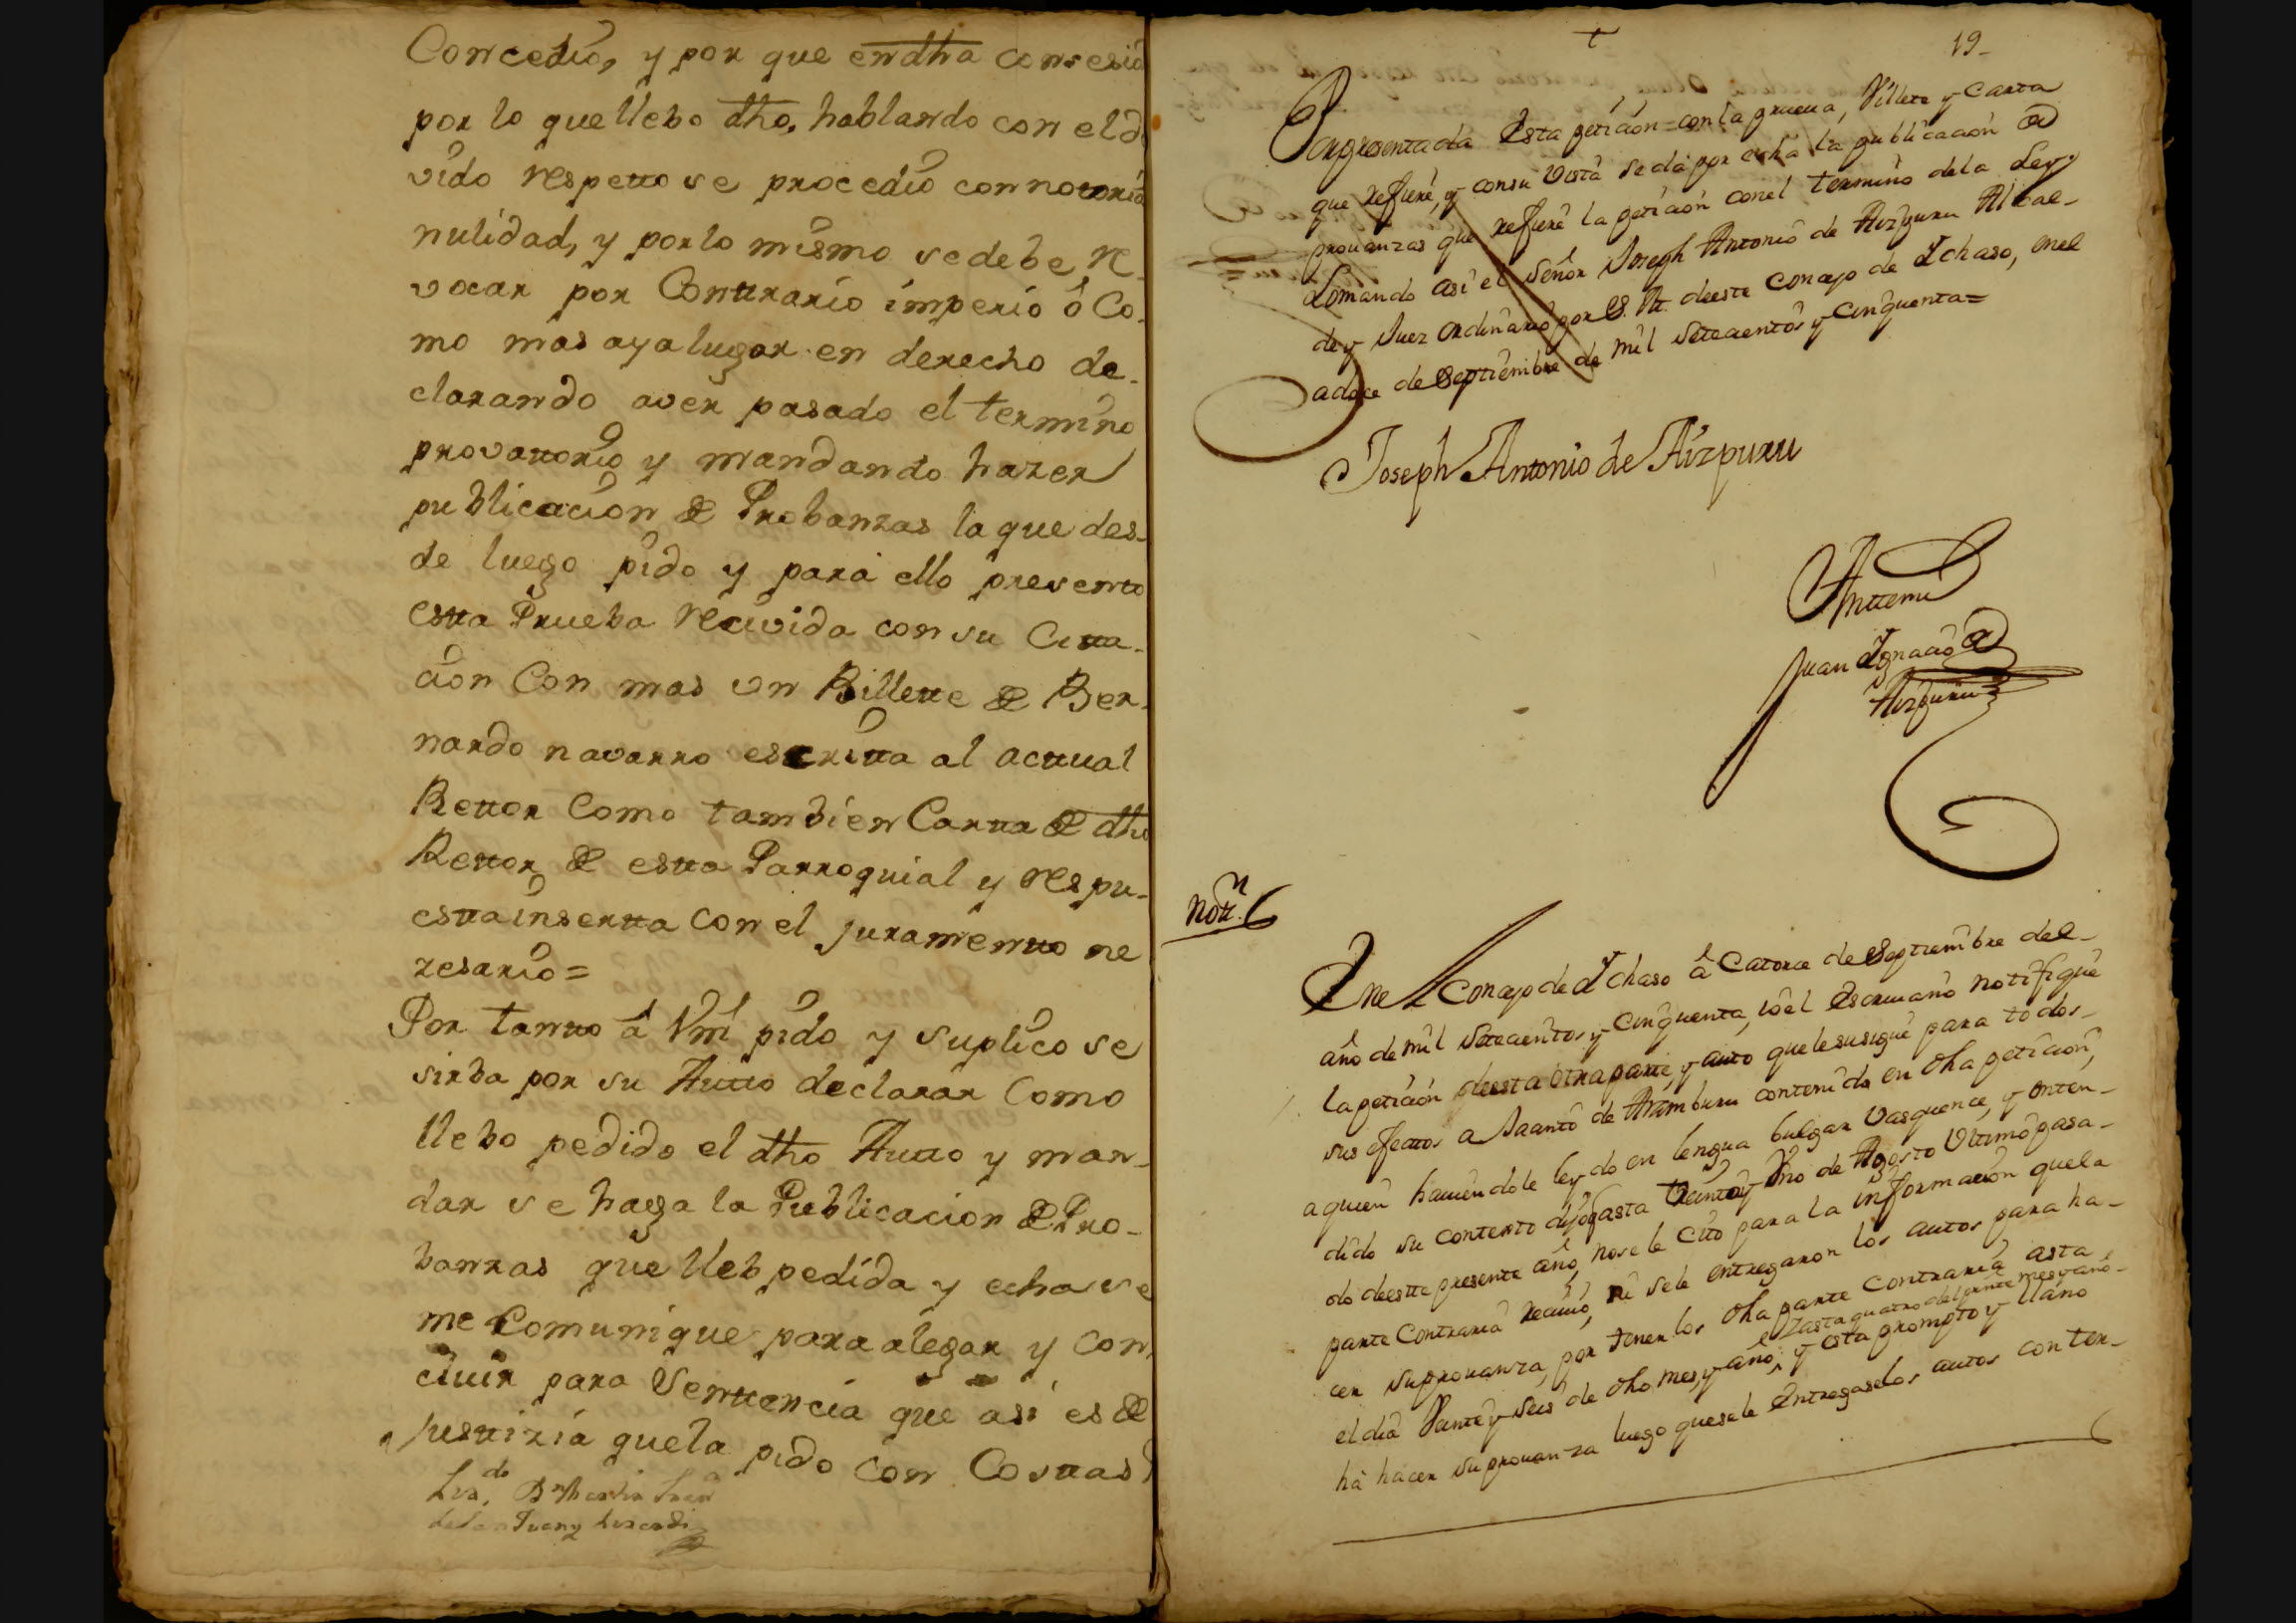 Concedio, y por que en dha consesio
por lo que llebo dho, hablando con el d
vido respetto se procedio con notoria
nulidad, y por lo mismo se debe re
vocar por Contrario imperio ô Co-
mo mas aya lugar en derecho de-
clarando aver pasado el termino
provattorio y mandando hazer
publicacion de Probanzas la que des-
de luego pido y para ello presento
esta Prueba recivida con su Citta-
cion Con mas un Billette de Ber-
nardo navarro escritta al acttual
Rettor Como tambien Cartta de dho
Rettor de estta Parroquial y respu-
estta insertta con el juramentto ne
zesario=
Por tantto â Vm pido y suplico se
sirba por su Autto declarar Como
llebo pedido el dho Autto y man-
dar se haga la Publicacion de Pro-
banzas que lleb pedida y echa se
me Comunique para alegar y con
cluir para Senttencia que asi es de
justtizia que la pido con Costtas
19-
Por presentada Esta peticion=con la prueua, Villete y Carta
que refiere, y con su vista se da por echa la publicacion de
prouanzas que refiere la peticion con el termino de la Ley
Lo mando asi el Señor Joseph Antonio de Aizpuru Alcal-
de y Juez ordinario por S. M. de este Concejo de Ychaso, en el
a doce de Septiembre de mil Setecientos y Cinquenta=
Joseph Antonio de Aizpuru
Antemi
Juan Ygnacio de
Aizpuru
Nottn
En el Concejo de Ychaso â Catorce de Septiembre del
año de mil Setecientos y Cinquenta, io el Escriuano notifique
la peticion de esta otra parte, y auto que le su sigue para todos
sus efectos a Jacinto de Aramburu contenido en dha peticion,
a quien hauiendole leydo en lengua bulgar Vasquence, y enten-
dido su contexto dijo: asta Treinta y Uno de Agosto Ultimo pasa-
do de este presente año, no se le cito para la informacion que la
parte Contraria reciuio, ni se le entregaron los autos para ha-
cer su prouanza, por tenerlos dha parte Contraria asta
el dia Veinte y Seis de dho mes, y año, y esta prompto y llano
y asta quatro del prnte mes y año-
ha hacer su prouanza luego que se le Entregase los autos con ter-